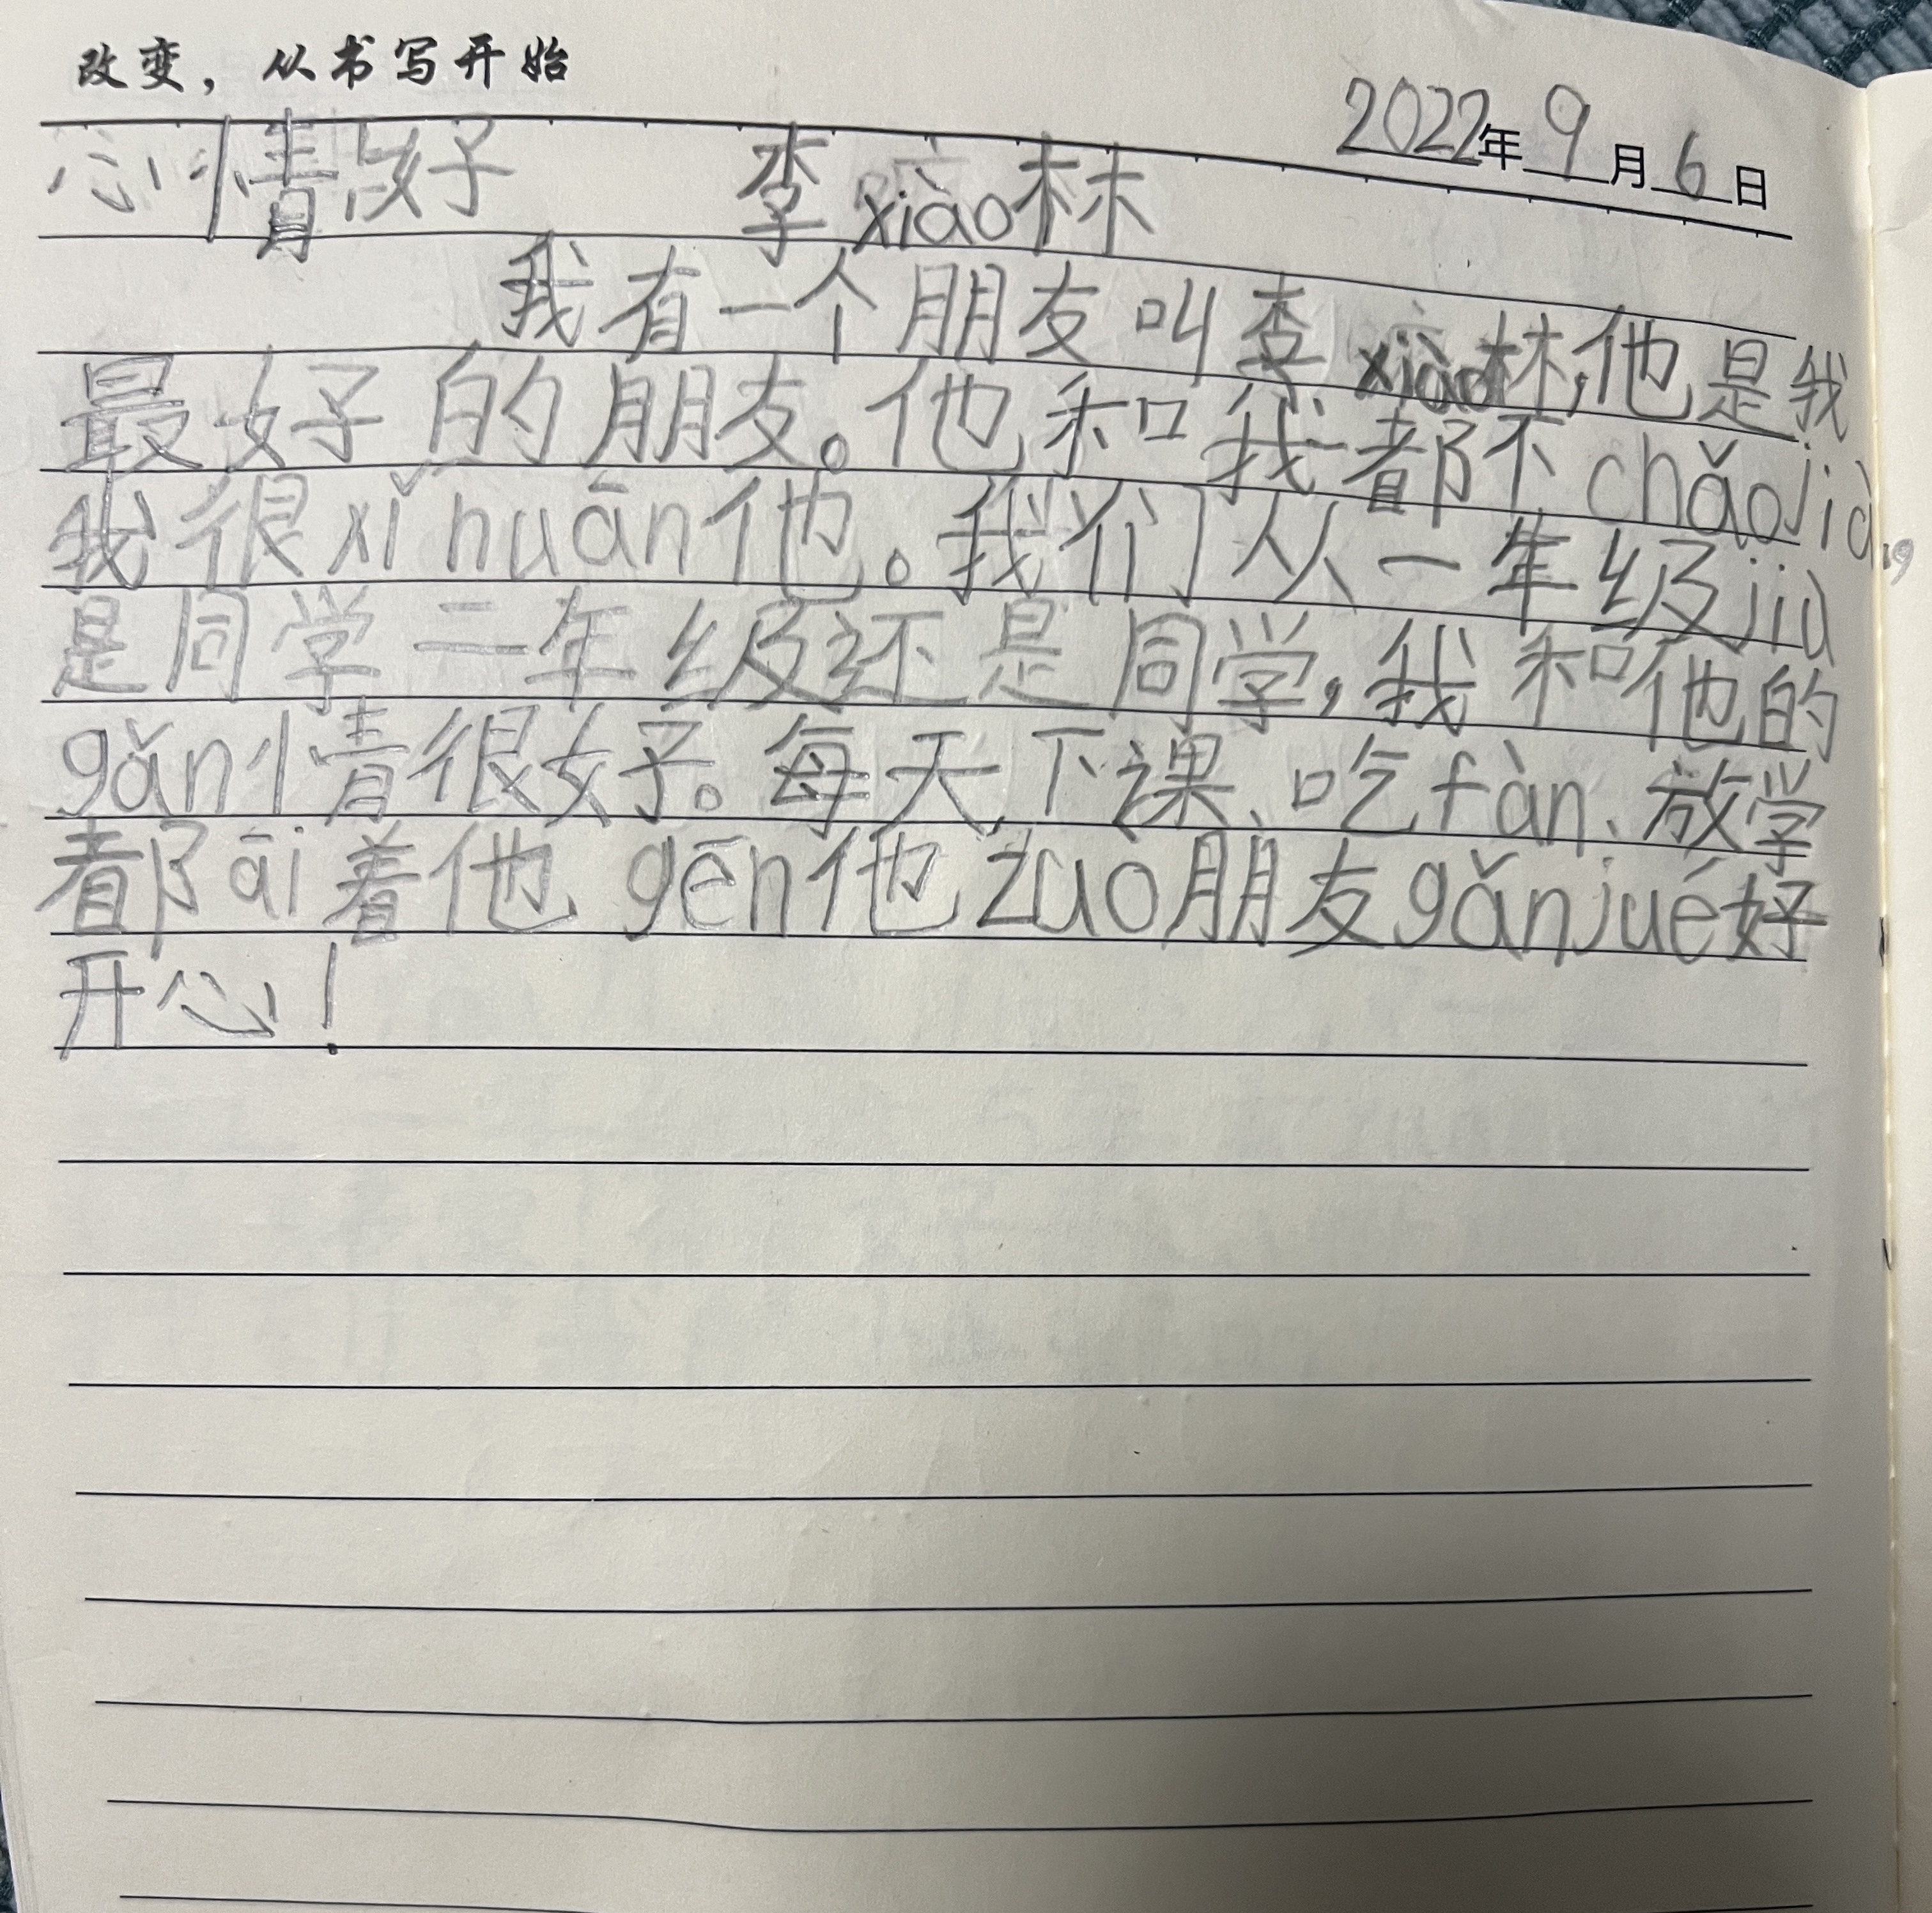 改变，从书写开始
2022年9月6日
心情好 李xiào林
我有一个朋友叫李xiào林,他是我
最好的朋友。他和我都不chǎojià,
我很xǐhuān他。我们从一年级jiù
是同学二年级还是同学,我和他的
gǎn情很好。每天下课、吃fàn、放学
都āi着他gēn他zuo朋友gǎnjué好
开心!